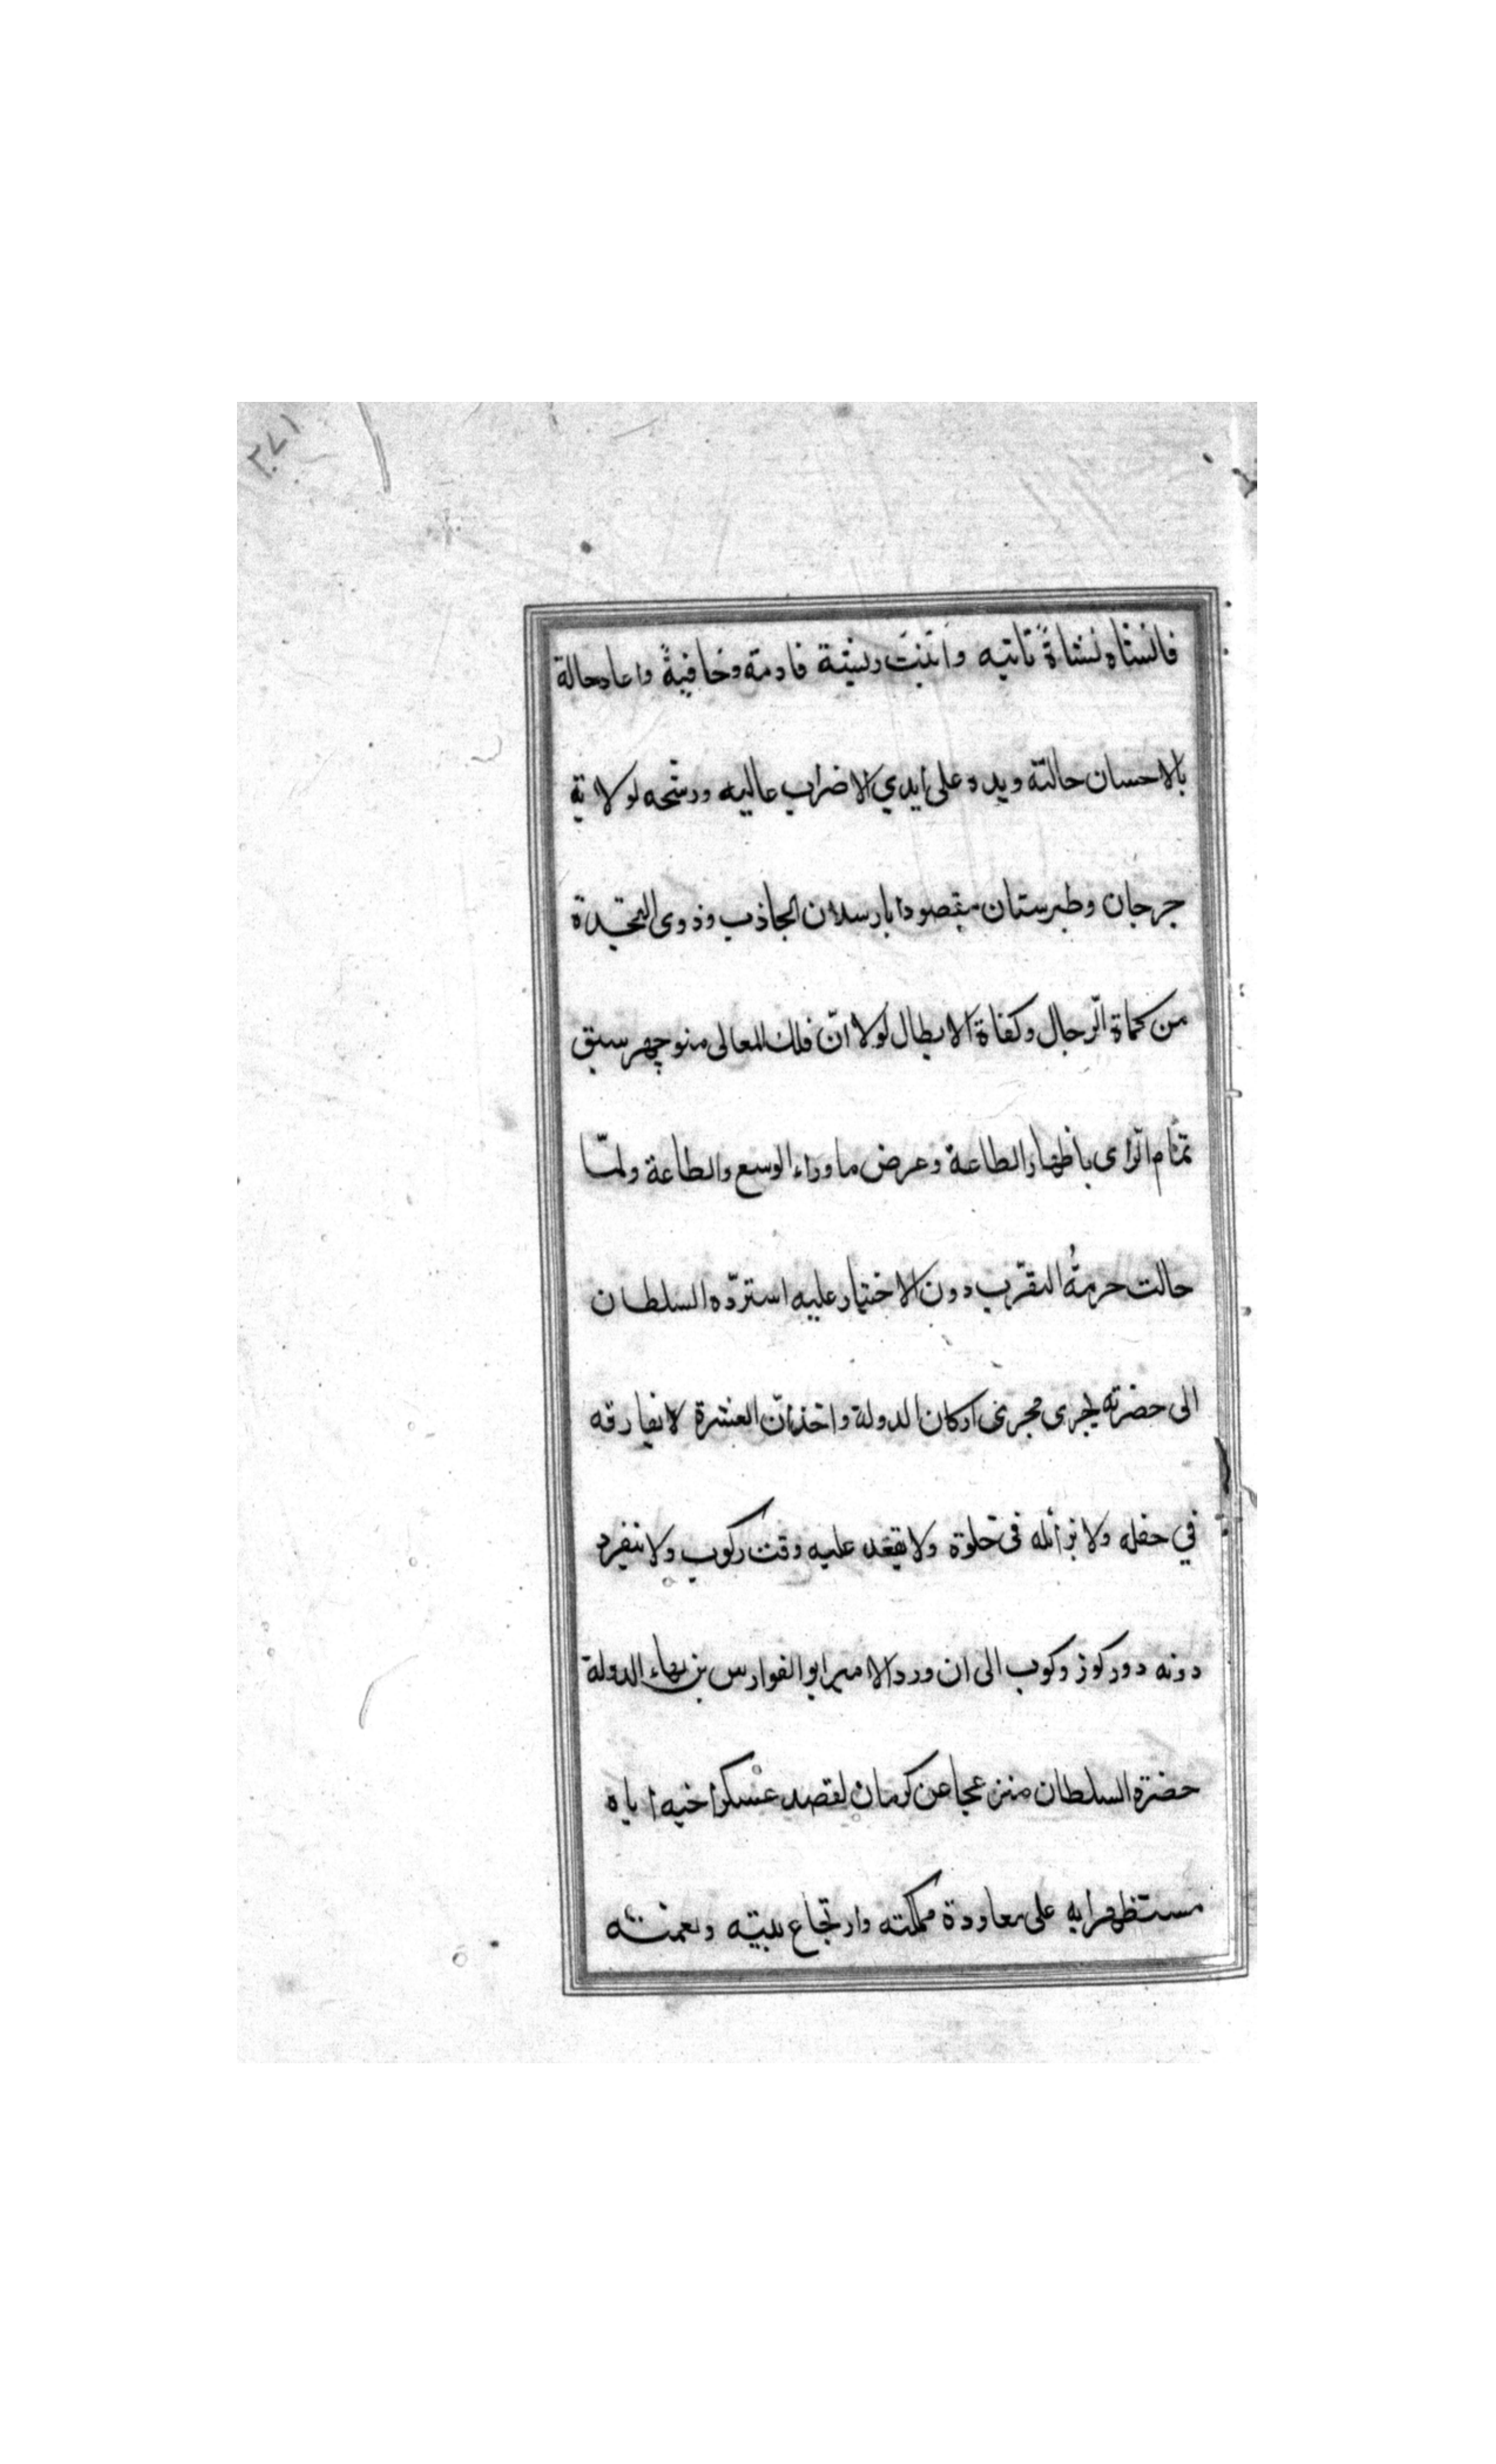 ٣٧١
فانشاه نشاةً ثانيه وانبتت ريشة قادمة وخافيةً واعاد حالة
بالاحسان حالية ويده على ايدي الاضراب عاليه ورشّحه لولاية
جرجان وطبرستان بارسلان الجاذب وذوى النجدة
من كماة الّرجال وكفاة الابطال لولا انّ فلك المعالى منوچهر سبق
تمام الّراى باظهار الطاعة وعرض ما وراء الوسع والطاعة ولمّا
حالت حرمةُ التقرّب دون الاختيار عليه استردّه السلطان
الى حضرته يجرى مجرى اركان الدولة واخذان العشرة لا يفارقه
في حفله ولا يزائله فى خلوة ولا عليه وقت ركوب ولا ينفرد
دونه دور كوز وكوب الى ان ورد الامير ابو الفوارس بن بهاء الدولة
حضرة السلطان منزعجا عن كرمان لقصد عسكر اخيه اياه
مستظهرا به على معاودة مملكته وارتجاع بيته ونعمته